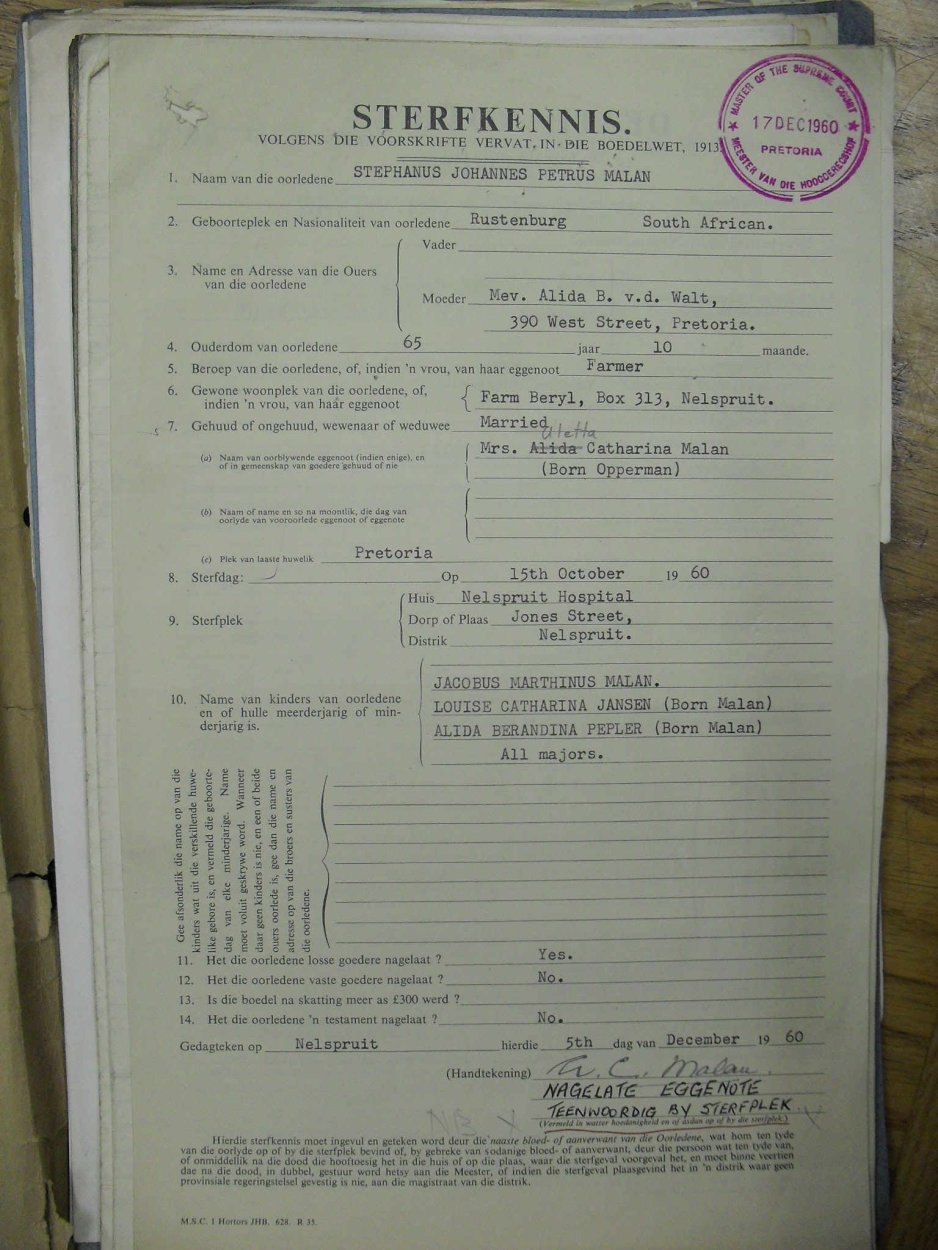 STERFKENNIS.
VOLGENS DIE VOORSKRIFTE VERVAT IN DIE BOEDELWET, 1913
MASTER OF THE SUPREME COURT
17 DEC 1960
PRETORIA
MEESTER VAN DIE HOOGGEREGSHOF
1. Naam van die oorledene STEPHANUS JOHANNES PETRUS MALAN
2. Geboorteplek en Nasionaliteit van oorledene Rustenburg South African.
Vader
3. Name en Adresse van die Ouers
van die oorledene
Moeder Mev. Alida B. v.d. Walt,
390 West Street, Pretoria.
4. Ouderdom van oorledene 65 jaar 10 maande.
5. Beroep van die oorledene, of, indien 'n vrou, van haar eggenoot Farmer
6. Gewone woonplek van die oorledene, of,
indien 'n vrou, van haar eggenoot Farm Beryl, Box 313, Nelspruit.
7. Gehuud of ongehuud, wewenaar of weduwee Married
Aletta
(a) Naam van oorblywende eggenoot (indien enige), en
of in gemeenskap van goedere gehuud of nie
Mrs. Alida Catharina Malan
(Born Opperman)
(b) Naam of name en so na moontlik, die dag van
oorlyde van vooroorlede eggenoot of eggenote
(c) Plek van laaste huwelik Pretoria
8. Sterfdag: Op 15th October 19 60
Huis Nelspruit Hospital
9. Sterfplek Dorp of Plaas Jones Street,
Distrik Nelspruit.
10. Name van kinders van oorledene
en of hulle meerderjarig of min-
derjarig is.
JACOBUS MARTHINUS MALAN.
LOUISE CATHARINA JANSEN (Born Malan)
ALIDA BERANDINA PEPLER (Born Malan)
All majors.
Gee afsonderlik die name op van die
kinders wat uit die verskillende huwe-
like gebore is, en vermeld die geboorte-
dag van elke minderjarige. Name
moet voluit geskrywe word. Wanneer
daar geen kinders is nie, en een of beide
ouers oorlede is, gee dan die name en
adresse op van die broers en susters van
die oorledene.
11. Het die oorledene losse goedere nagelaat ? Yes.
12. Het die oorledene vaste goedere nagelaat ? No.
13. Is die boedel na skatting meer as £300 werd ?
14. Het die oorledene 'n testament nagelaat ? No.
Gedagteken op Nelspruit hierdie 5th dag van December 19 60
(Handtekening) A. C. Malan.
NAGELATE EGGENOTE
TEENWOORDIG BY STERFPLEK.
(Vermeld in watter hoedanigheid en of asdan op of by die sterfplek)
Hierdie sterfkennis moet ingevul en geteken word deur die naaste bloed- of aanverwant van die Oorledene, wat hom ten tyde
van die oorlyde op of by die sterfplek bevind of, by gebreke van sodanige bloed- of aanverwant, deur die persoon wat ten tyde van,
of onmiddellik na die dood die hooftoesig het in die huis of op die plaas, waar die sterfgeval voorgeval het, en moet binne veertien
dae na die dood, in dubbel, gestuur word hetsy aan die Meester, of indien die sterfgeval plaasgevind het in 'n distrik waar geen
provinsiale regeringstelsel gevestig is nie, aan die magistraat van die distrik.
M.S.C. 1 Hortors JHB. 628. R 35.